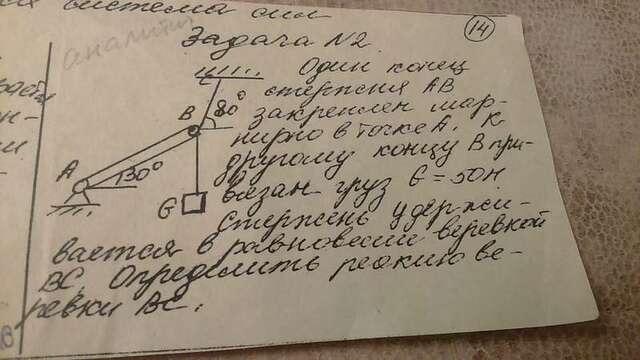 система сил
аналити
14
Задача №2.
Один конец
стержня АВ
закреплен шар-
нирно в точке А. К
другому концу В при-
вязан груз G = 50Н
Стержень удержи-
вается в равновесии веревкой
ВС. Определить реакцию ве-
ревки ВС.
В
80°
А
30°
G